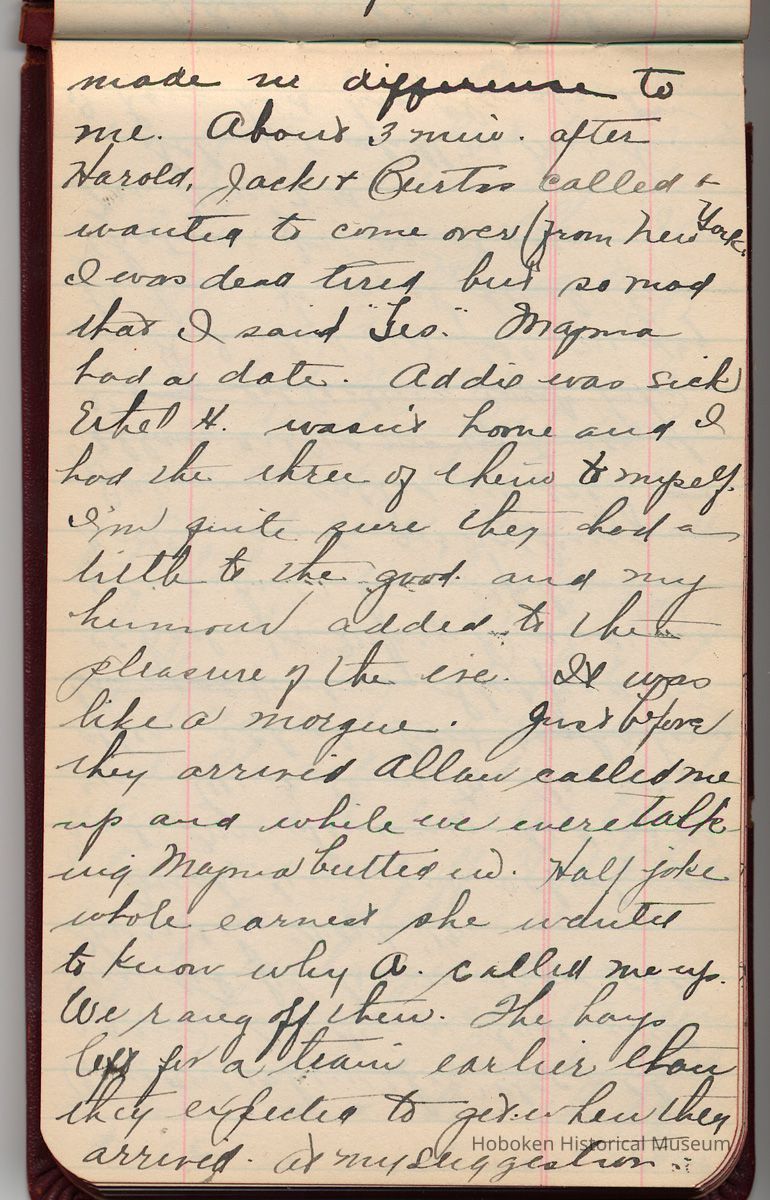 made no difference to
me. About 3 min. after
Harold, Jack & Curtis called &
wanted to come over (from New York.
I was dead tired but so mad
that I said "Yes." Magma
had a date. Addie was sick
Ethel H. wasn't home and I
had the three of them to myself.
I'm quite sure they had a
little to the good and my
humour added to the
pleasure of the eve. It was
like a morgue. Just before
they arrived Allan called me
up and while we were talk-
ing Magma butted in. Half joke
whole earnest she wanted
to know why A. called me up.
We rang off then. The boys
left for a train earlier than
they expected to get when they
arrived. At my suggestion
Hoboken Historical Museum